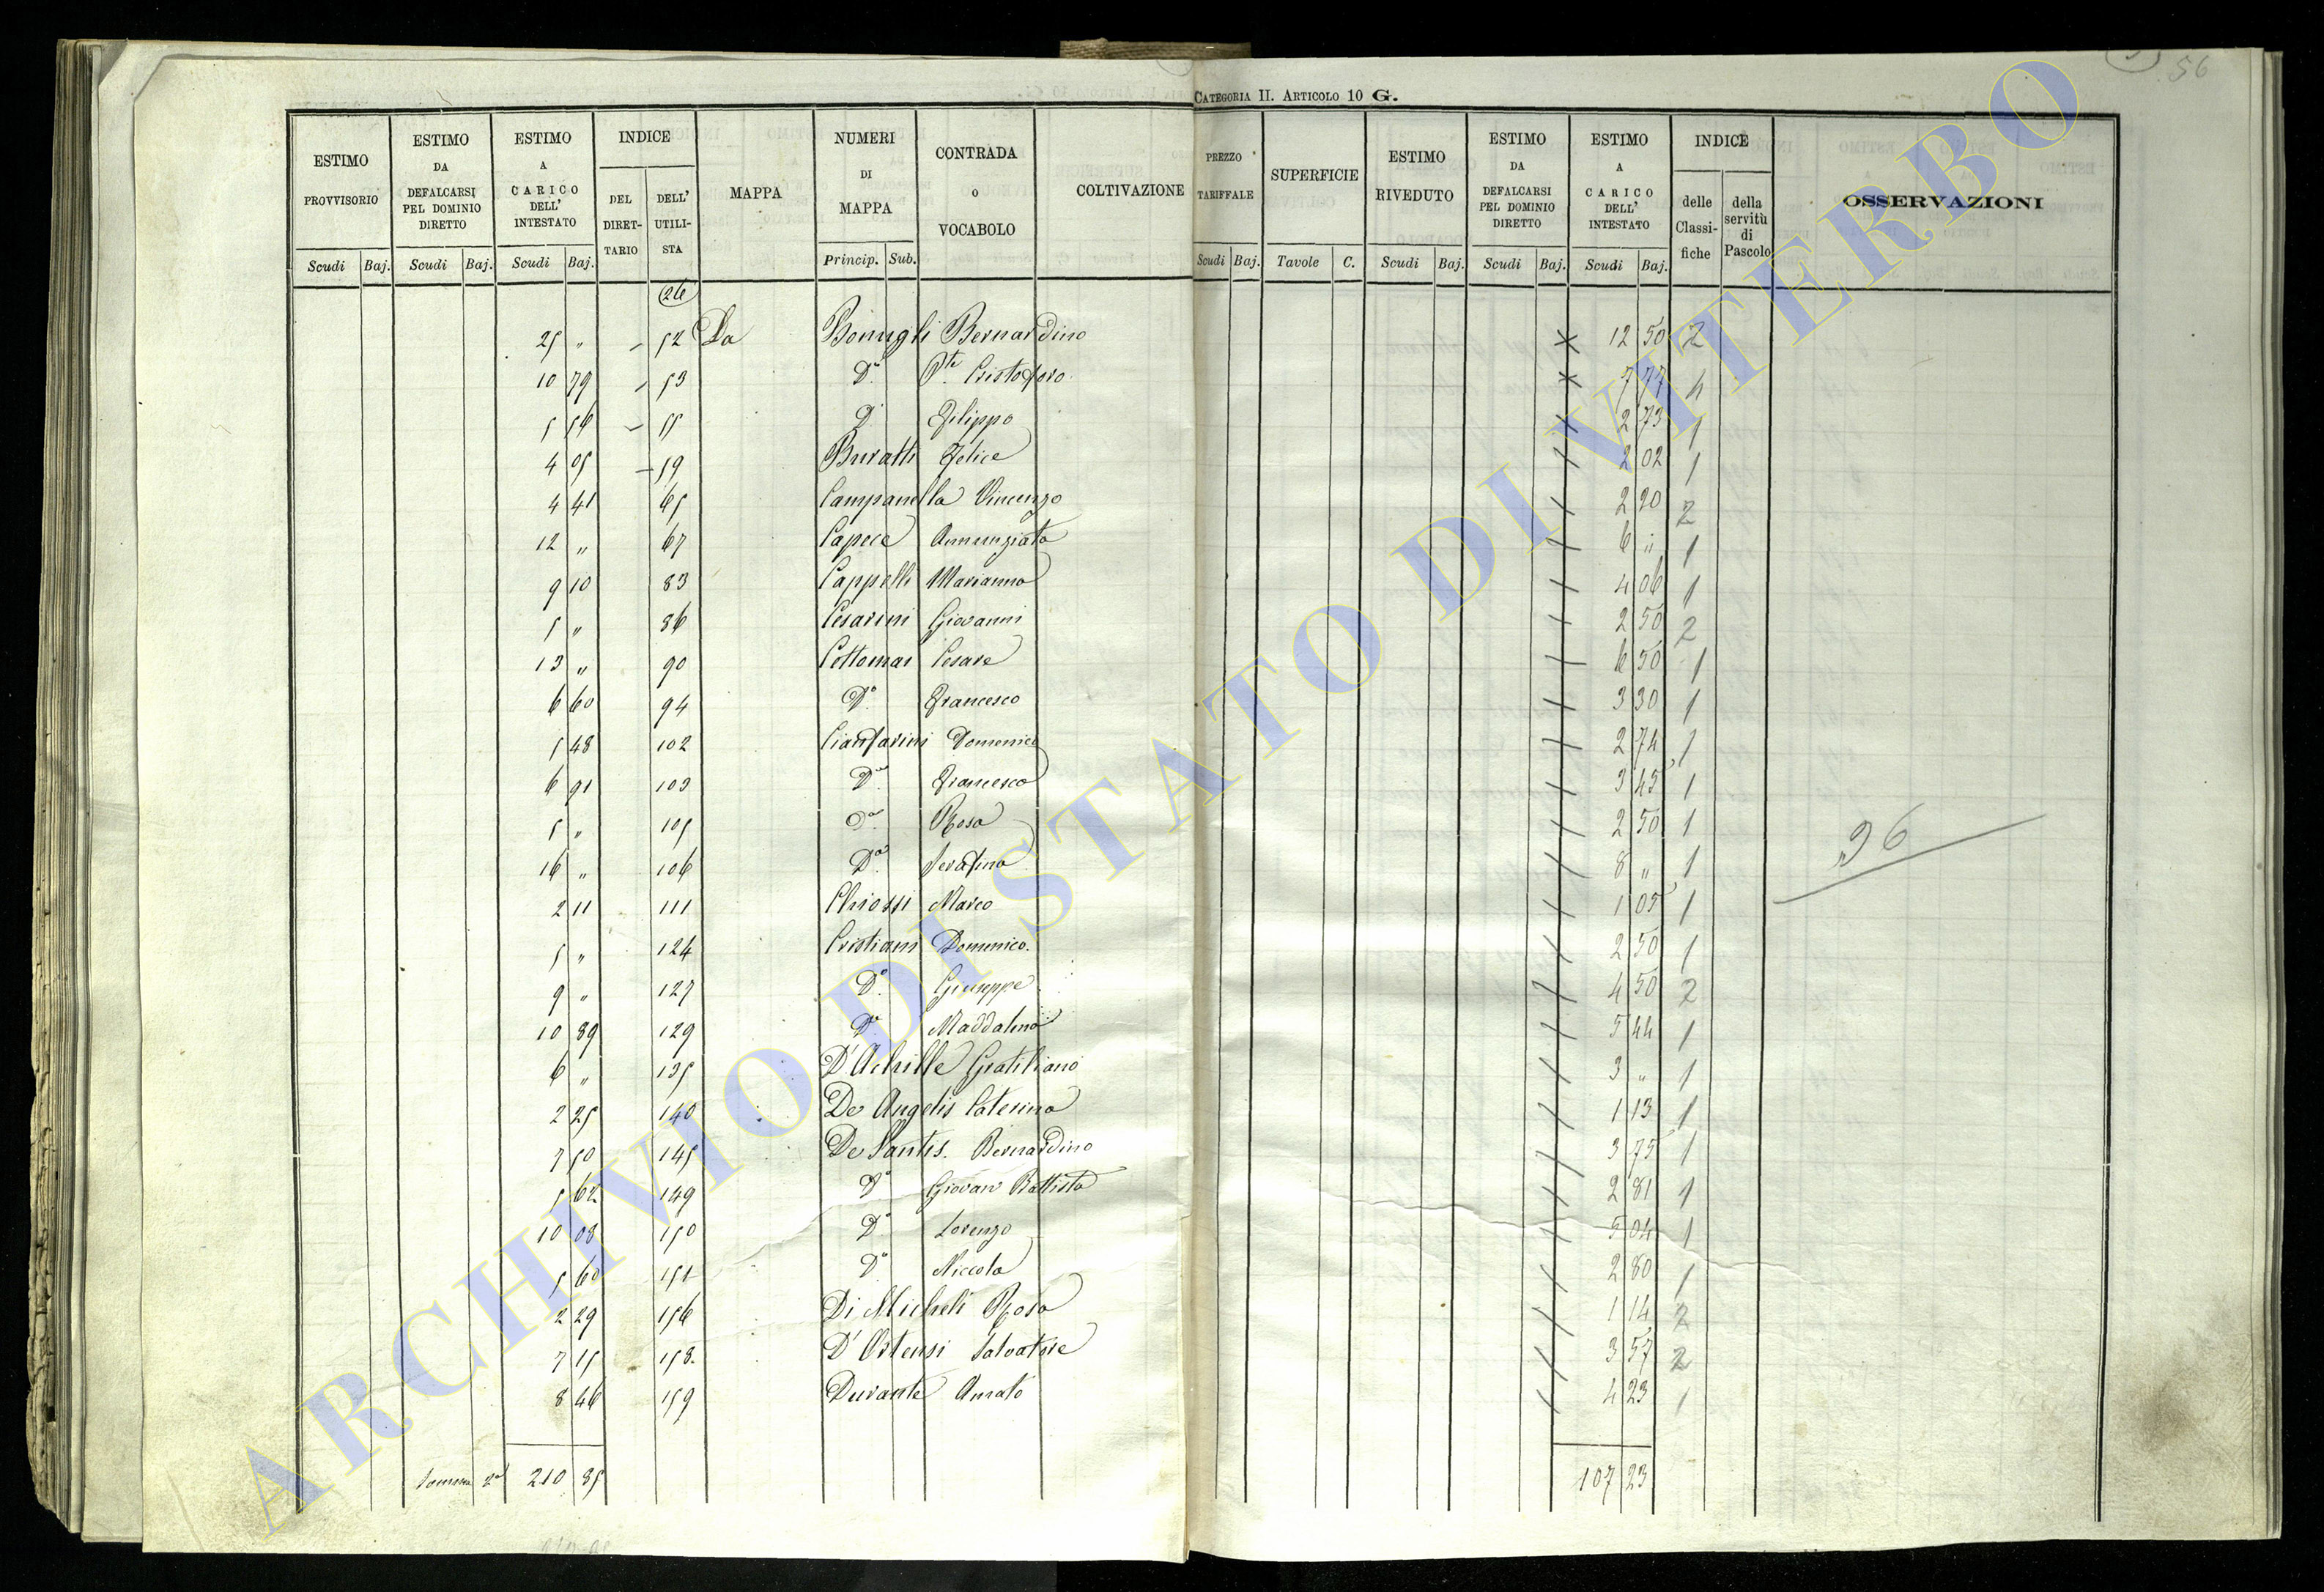 56
CATEGORIA II. ARTICOLO 10 G.
ESTIMO PROVVISORIO
ESTIMO DA DEFALCARSI PEL DOMINIO DIRETTO
ESTIMO A CARICO DELL' INTESTATO
INDICE
DEL DIRET-TARIO
DELL' UTILI-STA
MAPPA
NUMERI DI MAPPA
CONTRADA o VOCABOLO
COLTIVAZIONE
PREZZO TARIFFALE
SUPERFICIE
ESTIMO RIVEDUTO
ESTIMO DA DEFALCARSI PEL DOMINIO DIRETTO
ESTIMO A CARICO DELL' INTESTATO
INDICE
delle Classi-fiche
della servitù di Pascolo
OSSERVAZIONI
Scudi Baj. Scudi Baj. Scudi Baj. Princip. Sub. Scudi Baj. Tavole C. Scudi Baj. Scudi Baj. Scudi Baj.
26
25 " 52 Da Bonugli Bernardino 12 50 2
10 79 53 D.º P.te Cristoforo 7 77 4
5 56 55 D Filippo 2 73 1
4 05 59 Buratti Felice 2 02 1
4 41 65 Campanella Vincenzo 2 20 2
12 " 67 Capece Annunziata 6 " 1
9 10 83 Cappelli Marianna 4 06 1
5 " 86 Cesarini Giovanni 2 50 2
13 " 90 Cottomai Cesare 6 50 1
6 60 94 D.º Francesco 3 30 1
5 48 102 Cianfarini Domenico 2 74 1
6 91 103 D.º Francesco 3 45 1
5 " 105 D.a Rosa 2 50 1
16 " 106 D.a Serafina 8 " 1
2 11 111 Chiossi Marco 1 05 1
5 " 124 Cristiani Domenico. 2 50 1
9 " 127 D.º Giuseppe 4 50 2
10 89 129 D.a Maddalena 5 44 1
6 " 135 D'Achille Gratiliano 3 " 1
2 25 140 De Angelis Caterina 1 13 1
7 50 145 De Santis. Bernardino 3 75 1
5 62 149 D.º Giovan Battista 2 81 1
10 08 150 D.º Lorenzo 5 04 1
5 60 151 D.º Niccola 2 80 1
2 29 156 Di Micheli Rosa 1 14 2
7 15 158. D'Ortensi Salvatore 3 57 2
8 46 159 Durante Amato 4 23 1
Somma 2a 210 85 107 23
36
ARCHIVIO DI STATO DI VITERBO